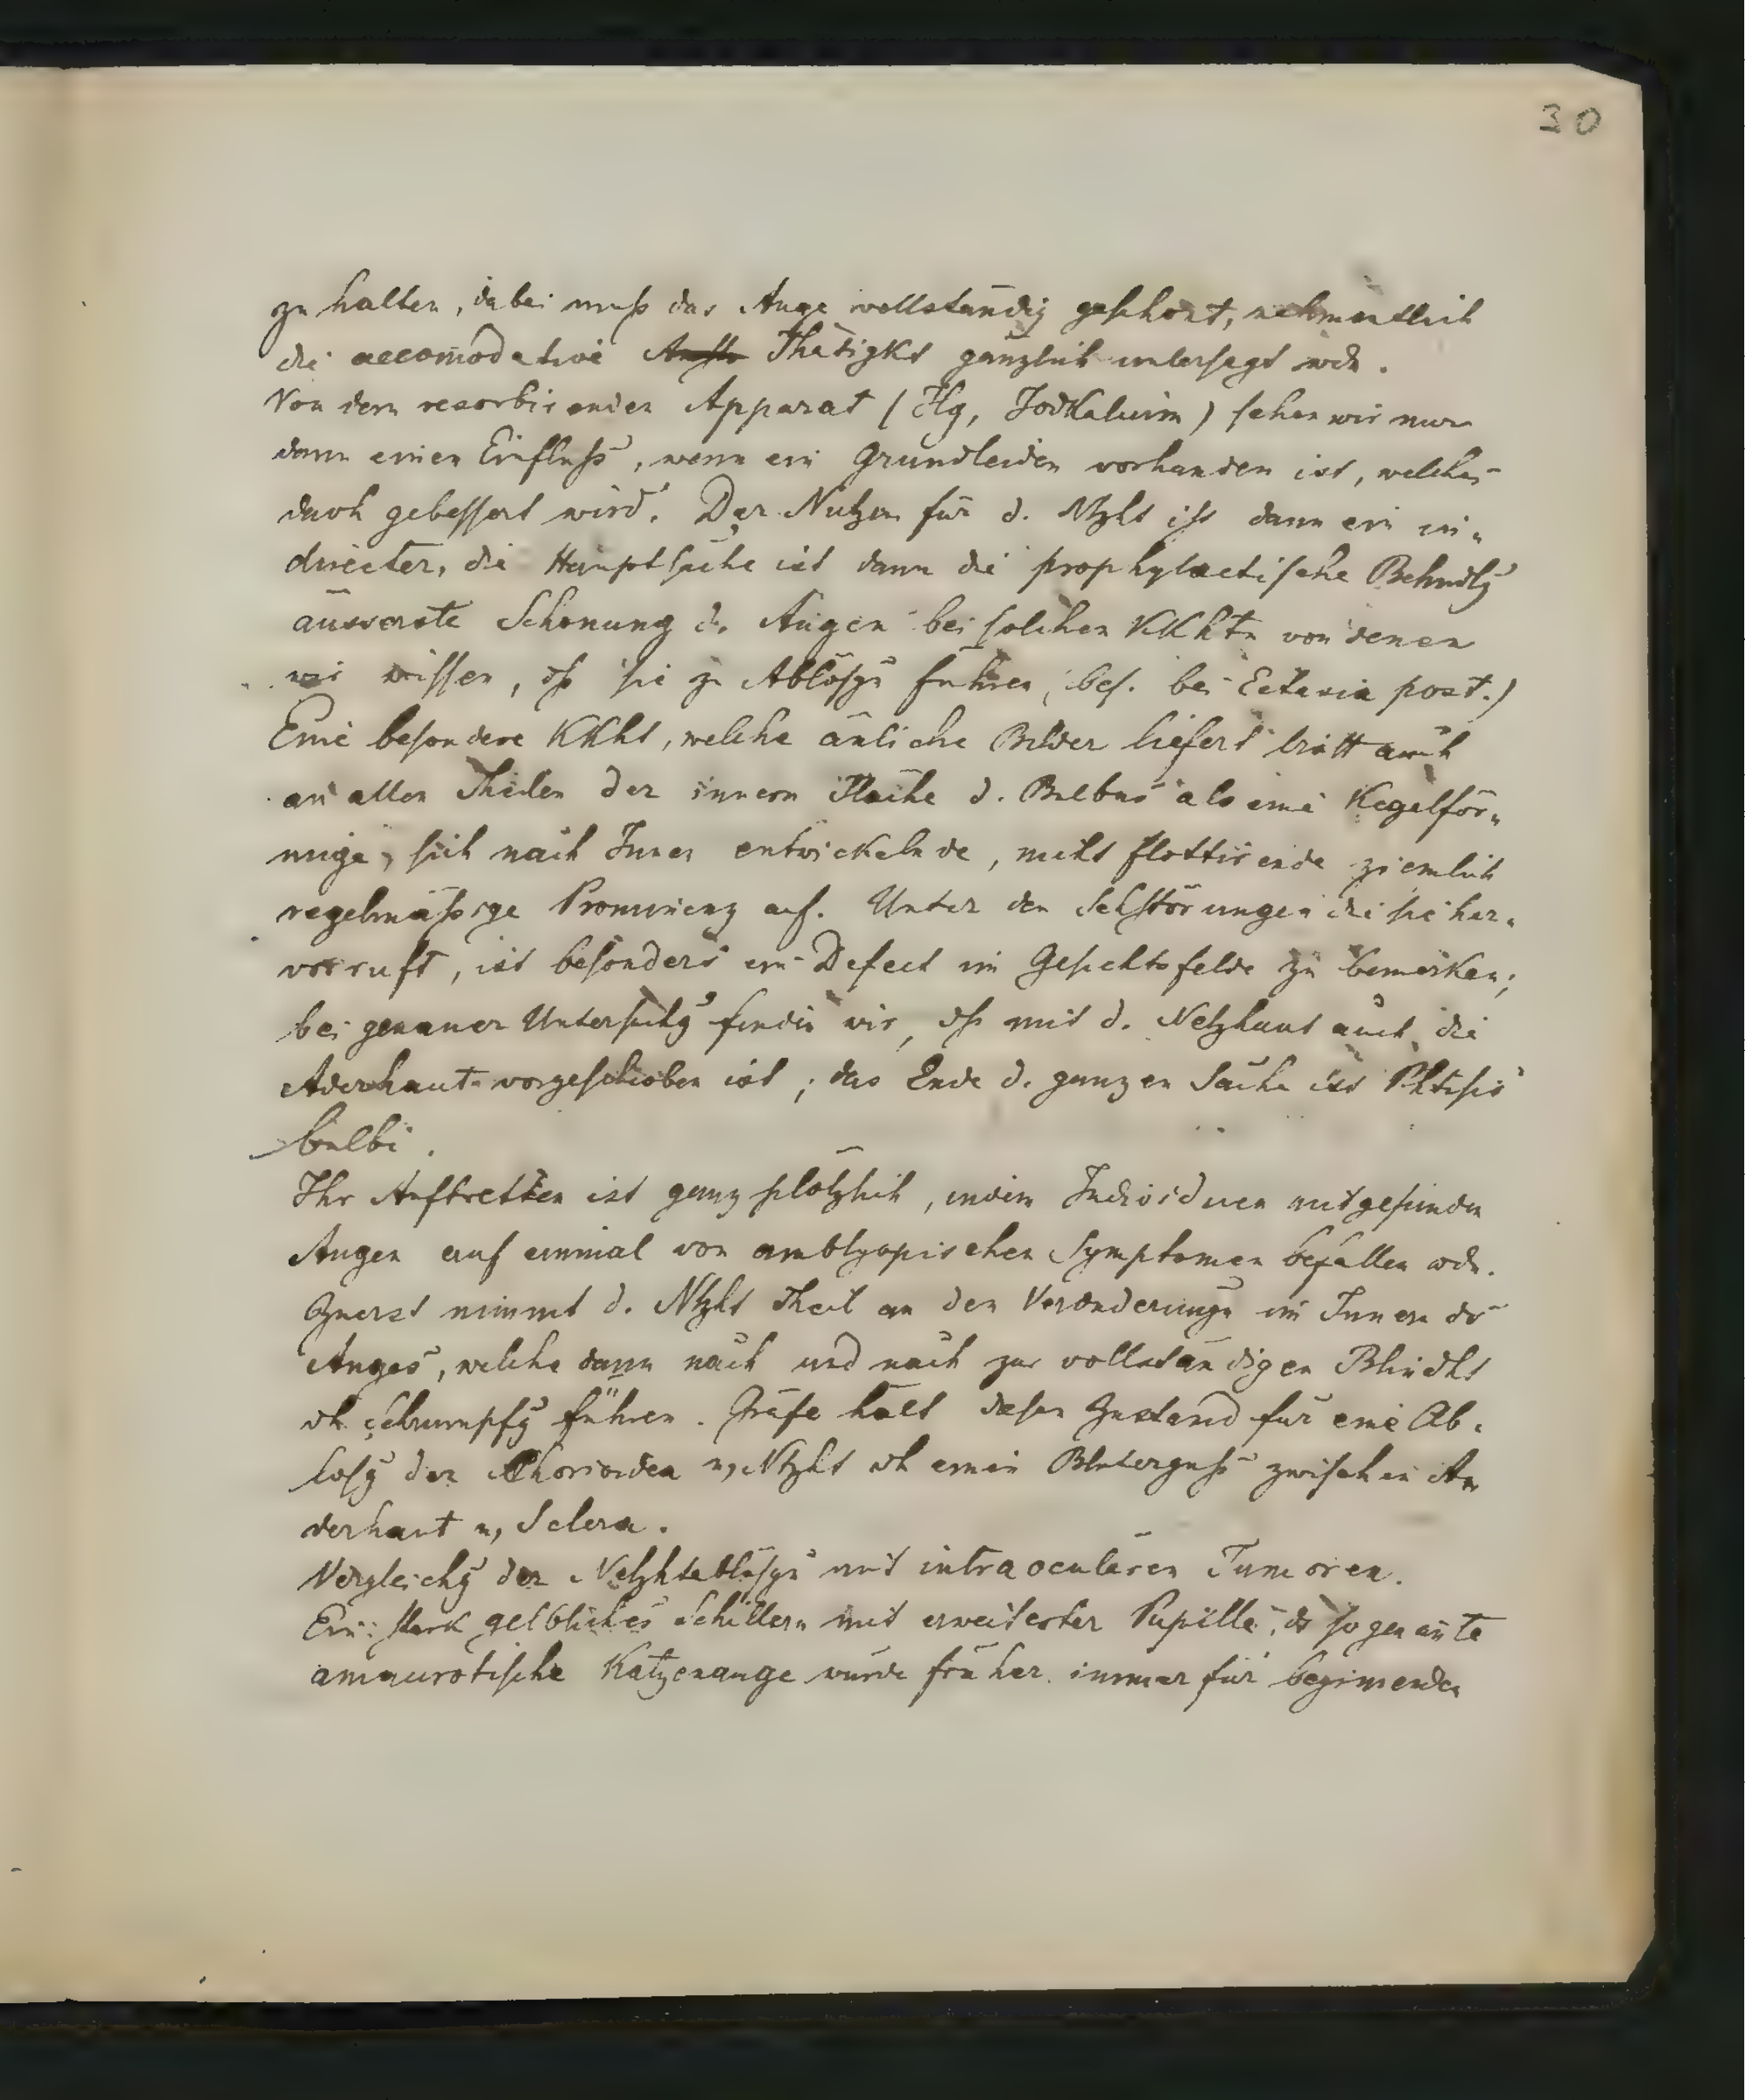 30
zu halten, dabei muß das Auge vollständig geschont, nahmentlich
die accom̄odative Thätigkt gänzlich untersagt wdn.
Von dem resorbirenden Apparat (Hg, Jodkalium) sehen wir nur
dann einen Einfluß, wenn ein Grundleiden vorhanden ist, welches
durch gebessert wird. Der Nutzen für d. Ntzht ist dann ein in„
directer, die Hauptsache ist dann die prophylactische Behndlg
äusserste Schonung d. Augen bei solchen Kkhtn von denen
wir wissen, dß sie zu Ablösgn führen, bes. bei Ectasia post.)
Eine besondere Kkht, welche änliche Bilder liefert tritt auch
an allen Theilen der innern Fläche d. Bulbus als eine Kegelför„
mige, sich nach Innen entwickelnde, nicht flottirende ziemlich
regelmäßige Prominenz auf. Unter den Sehstörungen die sie her„
vorruft, ist besonders ein Defect im Gesichtsfelde zu bemerken;
bei genauer Untersuchg finden wir, dß mit d. Netzhaut auch die
Aderhaut vorgeschoben ist; das Ende d. ganzen Sache ist Phtisis
bulbi.
Ihr Auftretten ist ganz plötzlich, indem Individuen mit gesunden
Augen auf einmal von amblyopischen Symptomen befallen wdn.
Zuerst nimmt d. Ntzht Theil an den Veränderungn im Innern ds
Auges, welche dann nach und nach zur vollständigen Blindht
dh Schrumpfg führen. Gräfe hält diesen Zustand für eine Ab„
lösg der Chorioidea u, Ntzht dh einen Bluterguß zwischen A„
derhaut u, Sclera.
Vergleichg der Netzhtablösgn mit intraocularen Tumoren.
Ein stark gelbliches Schillern mit erweiterter Pupille, ds sogenan̄te
amaurotische Katzenauge wurde früher immer für beginnenden